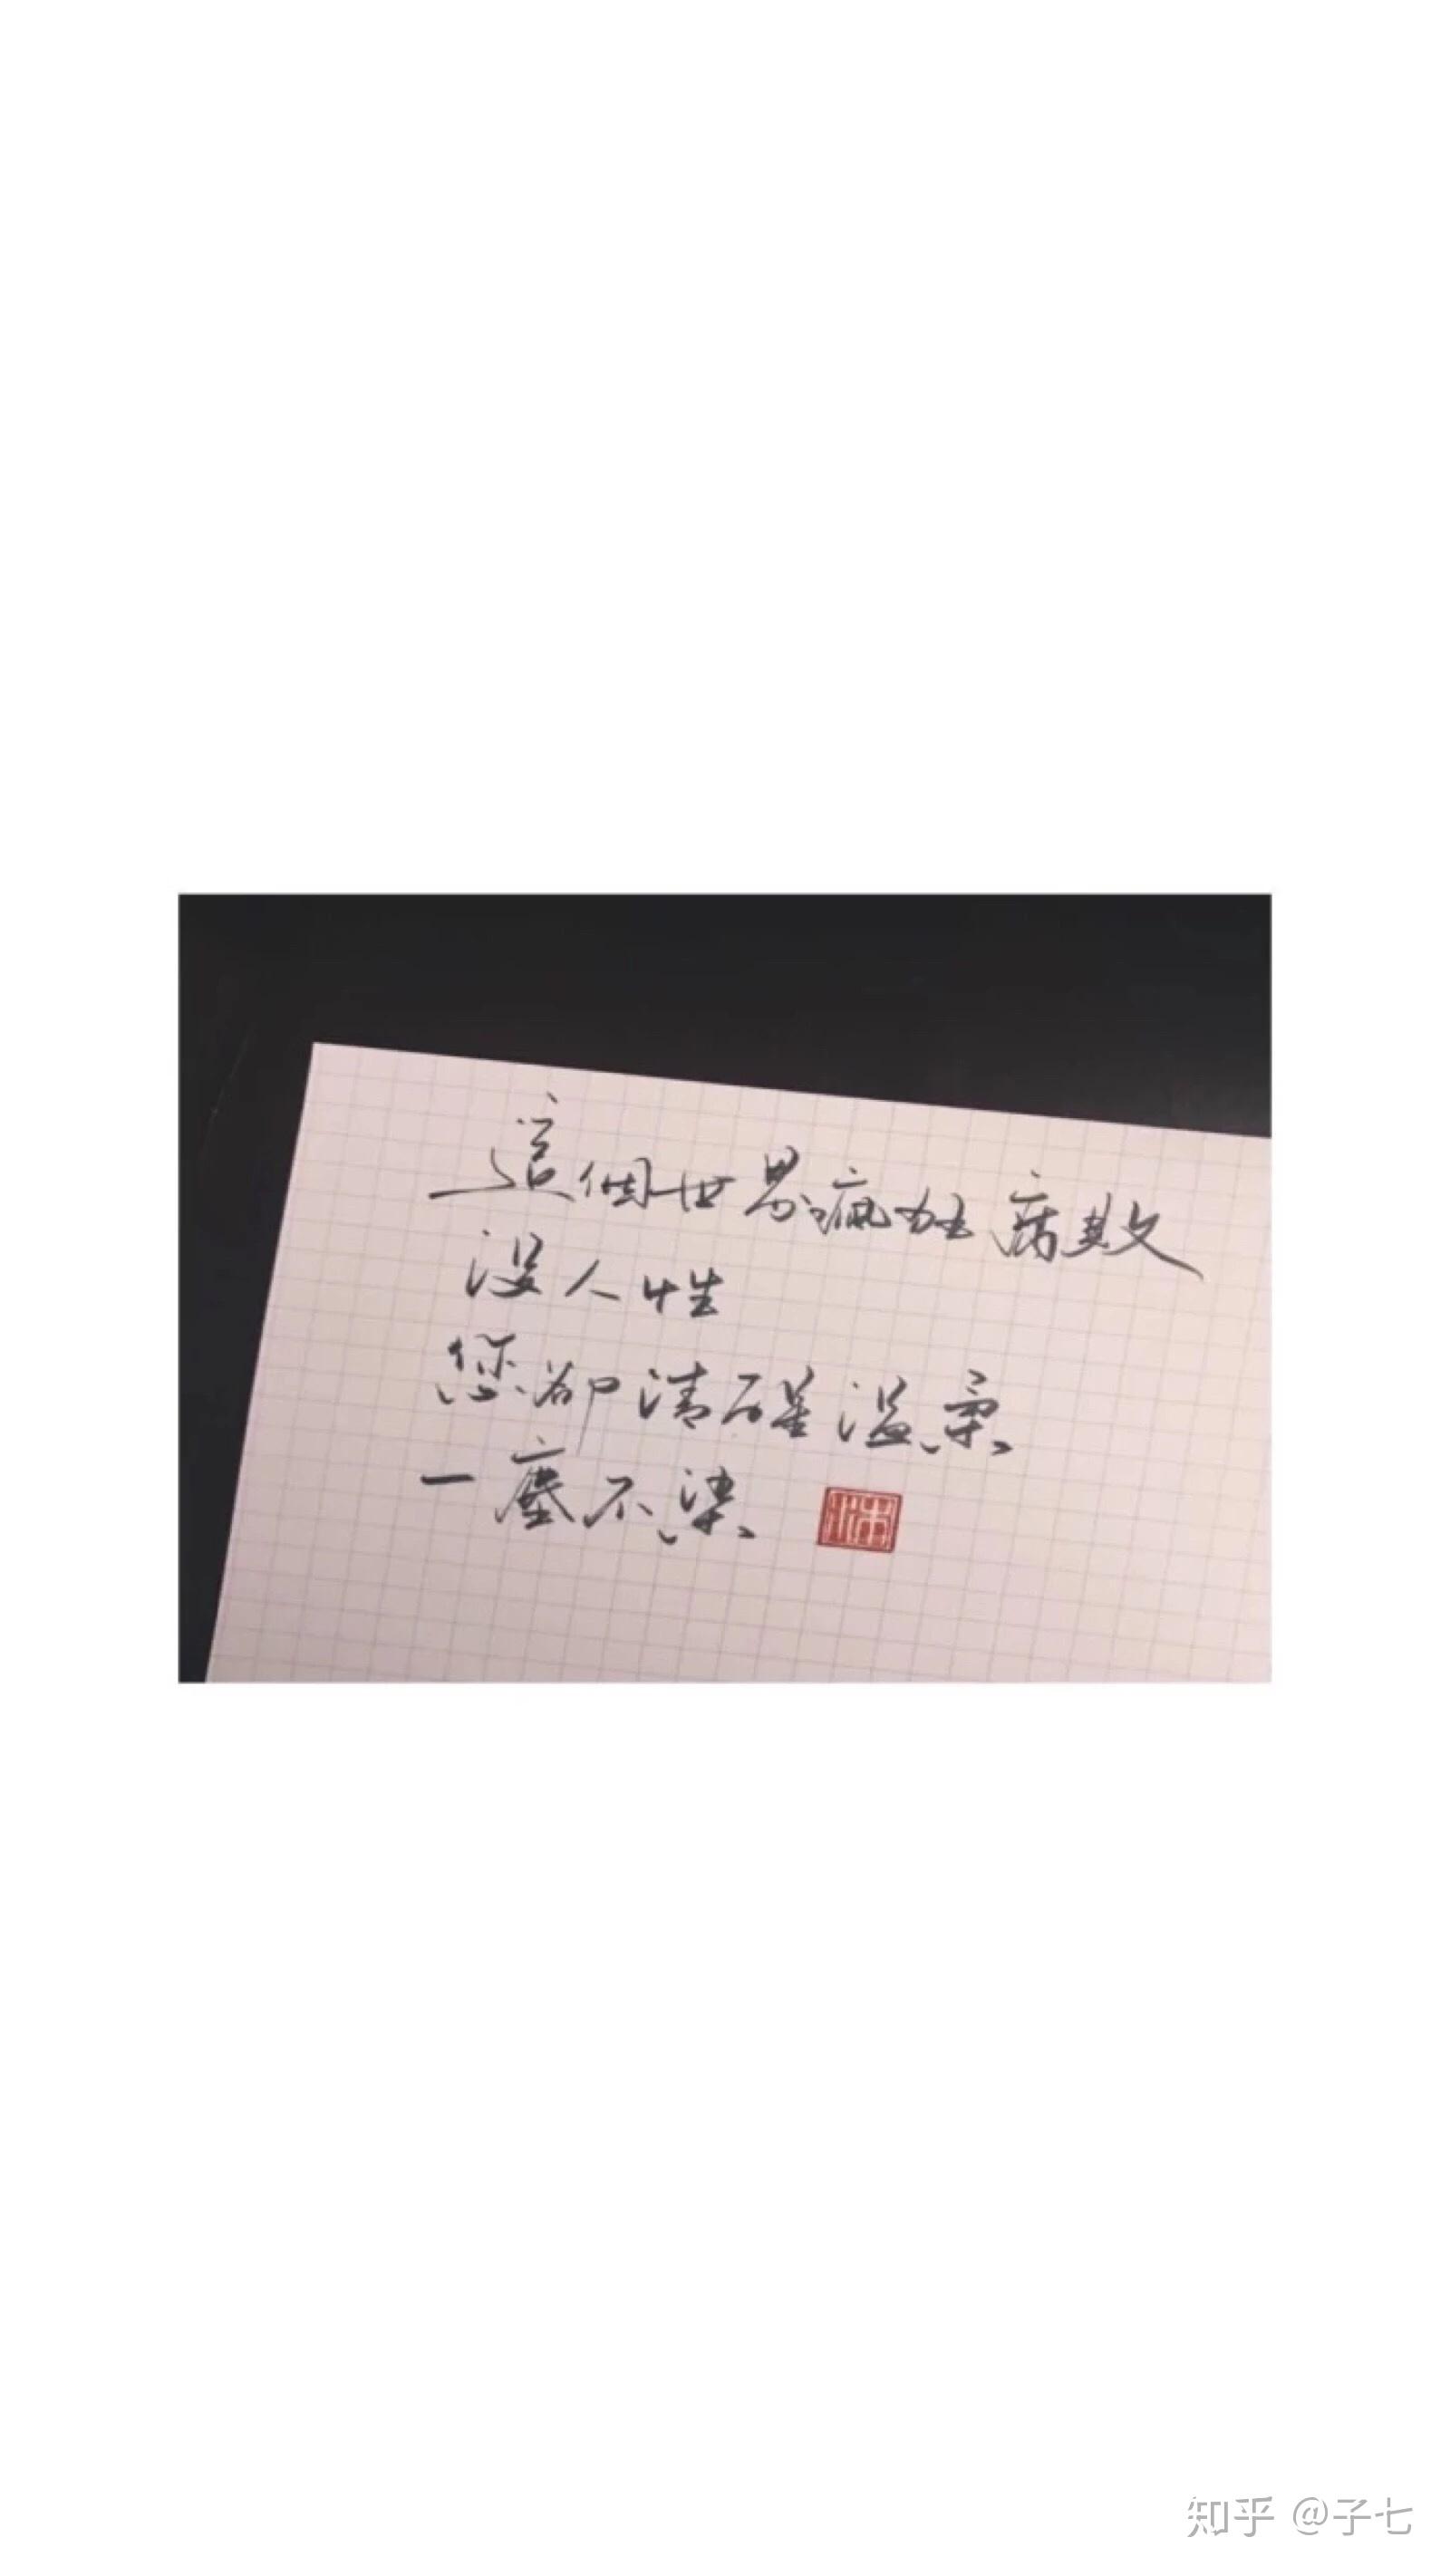 這個世界瘋狂病敗
沒人性
您卻清醒溫柔
一塵不染
知乎 @子七